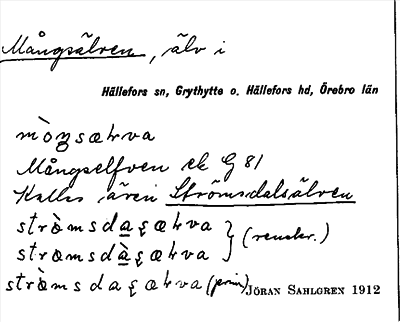 Mångsälven, älv i
Hällefors sn, Grythytte o. Hällefors hd, Örebro län
mòŋsæɫva
Mångselfven ek G 81
Kallas även Strömsdalsälven
stròmsdaʂæɫva
stromsdàʂæɫva } (renskr.)
stròmsdaʂæɫva (prim)
JÖRAN SAHLGREN 1912